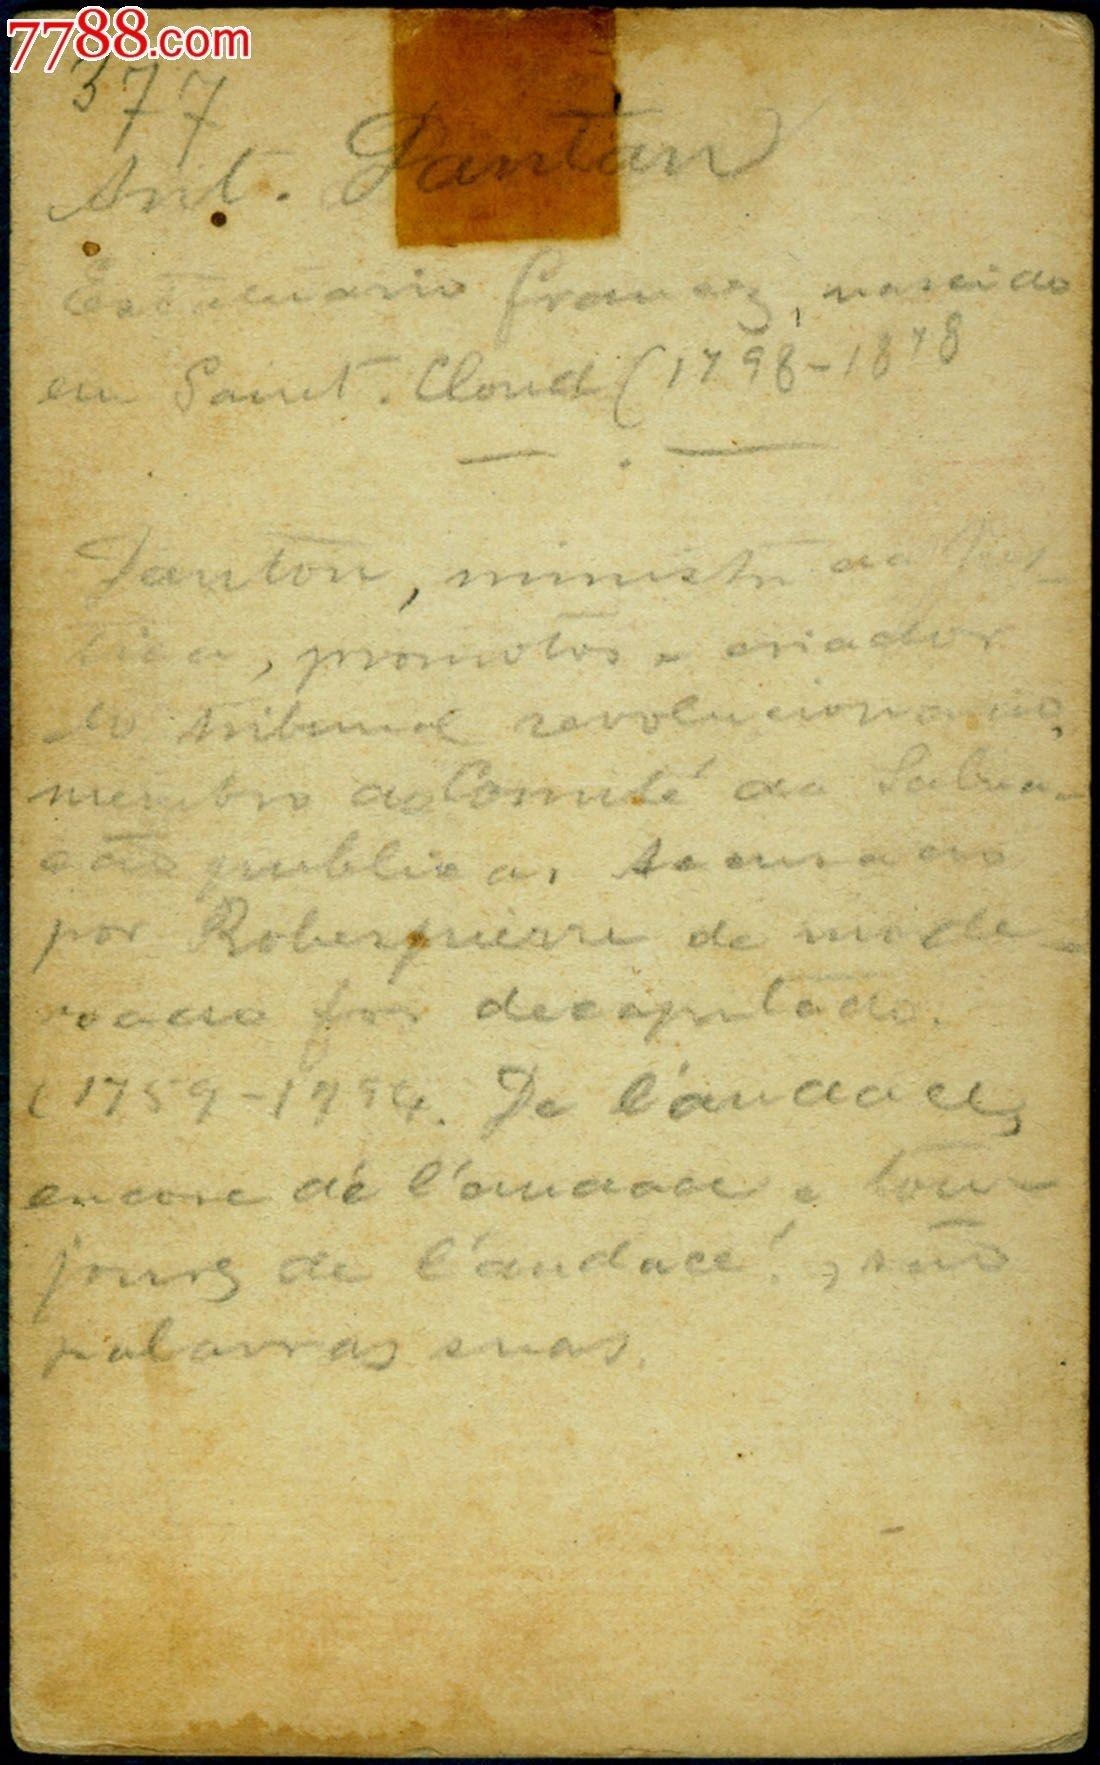 7788.com
377
Ant. Dantan
Estatuario francez, nascido
em Saint. Cloud (1798-1878
Danton, ministro da Jus-
tiça, promotor e criador
do tribunal revolucionario,
membro do Comité da Salva-
ção publica. Accusado
por Roberpierre de mode-
rado foi decapitado.
(1759-1794. De l'audace,
encore de l'audace e tou-
jours de l'audace!, são
palavras suas.